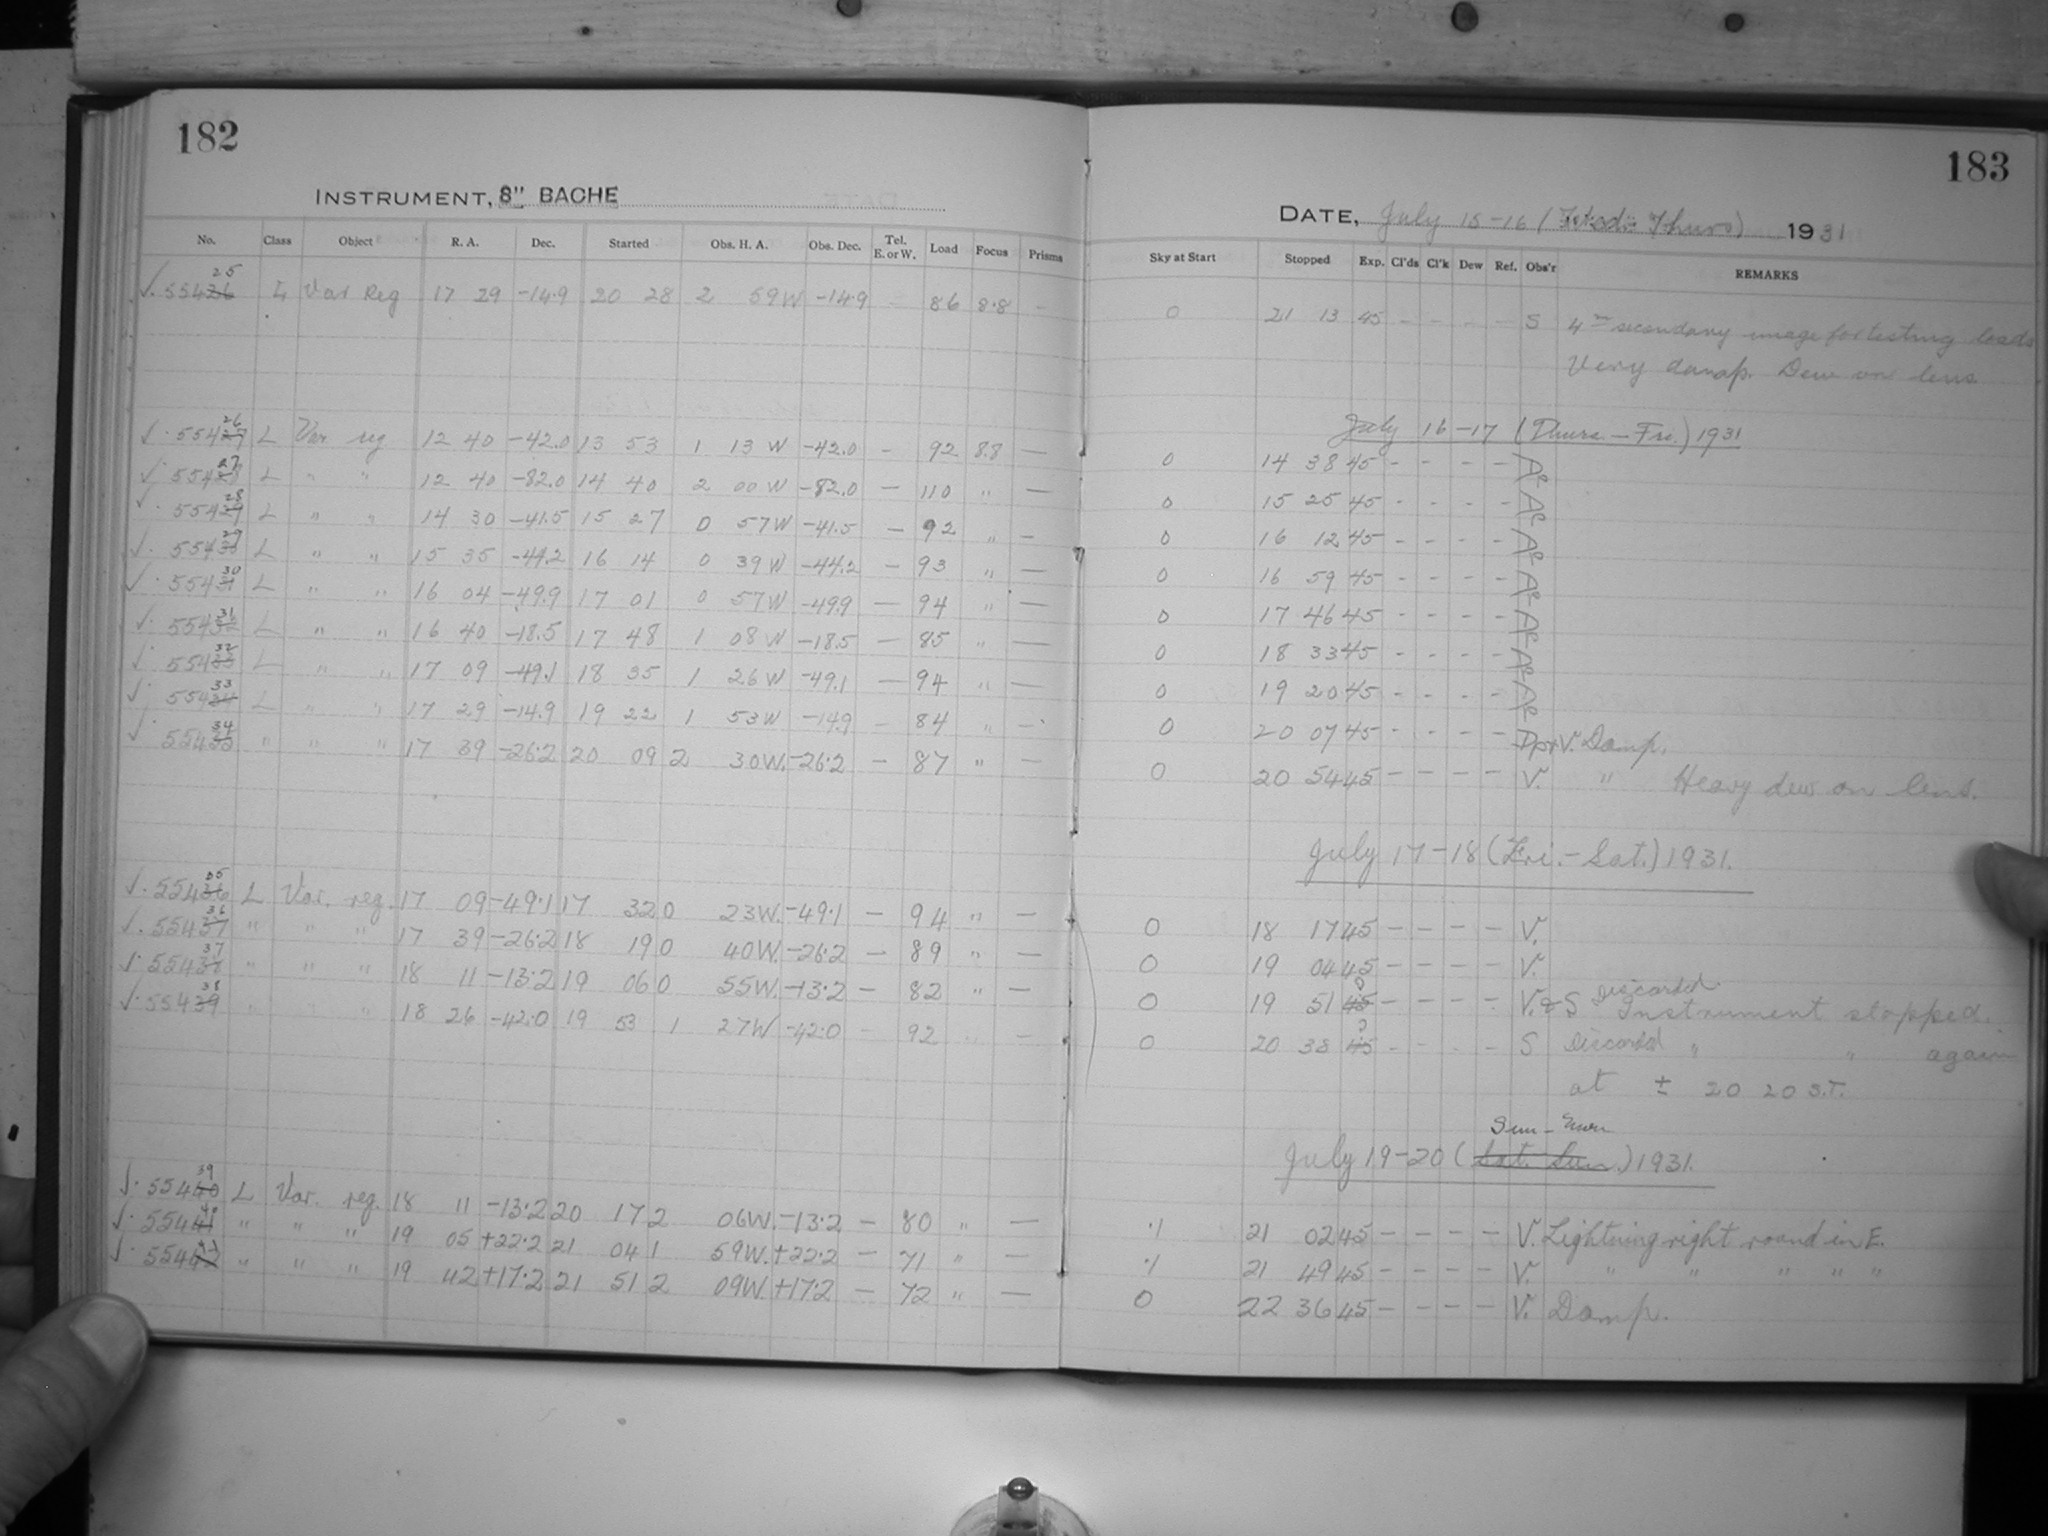 182
INSTRUMENT, 8" BACHE
No. Class Object R. A. Dec. Started Obs. H. A. Obs. Dec. Tel. E. or W. Load Focus Prisms
25
√. 55426 L Var Reg 17 29 -14.9 20 28 2 59W -14.9 86 8.8 -
26
√. 55427 L Var reg 12 40 -42.0 13 53 1 13 W -42.0 - 92 8.8 -
27
√. 55428 L " " 12 40 -82.0 14 40 2 00 W -82.0 - 110 " -
28
√. 55429 L " " 14 30 -41.5 15 27 0 57W -41.5 - 92 " -
29
√. 55430 L " " 15 35 -44.2 16 14 0 39 W -44.2 - 93 " -
30
√. 55431 L " " 16 04 -49.9 17 01 0 57W -49.9 - 94 " -
31
√. 55432 L " " 16 40 -18.5 17 48 1 08 W -18.5 - 85 " -
32
√. 55433 L " " 17 09 -49.1 18 35 1 26 W -49.1 - 94 " -
33
√. 55434 L " " 17 29 -14.9 19 22 1 53W -14.9 - 84 " -
34
√. 55435 " " " 17 39 -26.2 20 09 2 30W. -26.2 - 87 " -
35
√. 55436 L Var. reg. 17 09 -49.1 17 32 0 23W. -49.1 - 94 " -
36
√. 55437 " " " 17 39 -26.2 18 19 0 40W. -26.2 - 89 " -
37
√. 55438 " " " 18 11 -13.2 19 06 0 55W. -13.2 - 82 " -
38
√. 55439 " " " 18 26 -42.0 19 53 1 27W -42.0 - 92 " -
39
√. 55440 L Var. reg. 18 11 -13.2 20 17 2 06W. -13.2 - 80 " -
40
√. 55441 " " " 19 05 +22.2 21 04 1 59W. +22.2 - 71 " -
41
√. 55442 " " " 19 42 +17.2 21 51 2 09W. +17.2 - 72 " -
183
DATE, July 15-16 (Wed- Thurs) 1931
Sky at Start Stopped Exp. Cl'ds Cl'k Dew Ref. Obs'r REMARKS
0 21 13 45 - - - - S 4m secondary image for testing loads
Very damp. Dew on lens
July 16-17 (Thurs.-Fri.) 1931
0 14 38 45 - - - -
0 15 25 45 - - - -
0 16 12 45 - - - -
0 16 59 45 - - - -
0 17 46 45 - - - -
0 18 33 45 - - - -
0 19 20 45 - - - -
0 20 07 45 - - - - V. Damp.
0 20 54 45 - - - - V. " Heavy dew on lens.
July 17-18 (Fri.-Sat.) 1931.
0 18 17 45 - - - - V.
0 19 04 45 - - - - V.
Discarded.
0 19 51 45 ? - - - - V. & S Instrument stopped.
0 20 38 45 ? - - - - S Discarded " " again
at ± 20 20 S.T.
Sun-
July 19-20 (Sat. Sun.) 1931.
.1 21 02 45 - - - - V. Lightning right round in E.
.1 21 49 45 - - - - V. " " " " "
0 22 36 45 - - - - V. Damp.